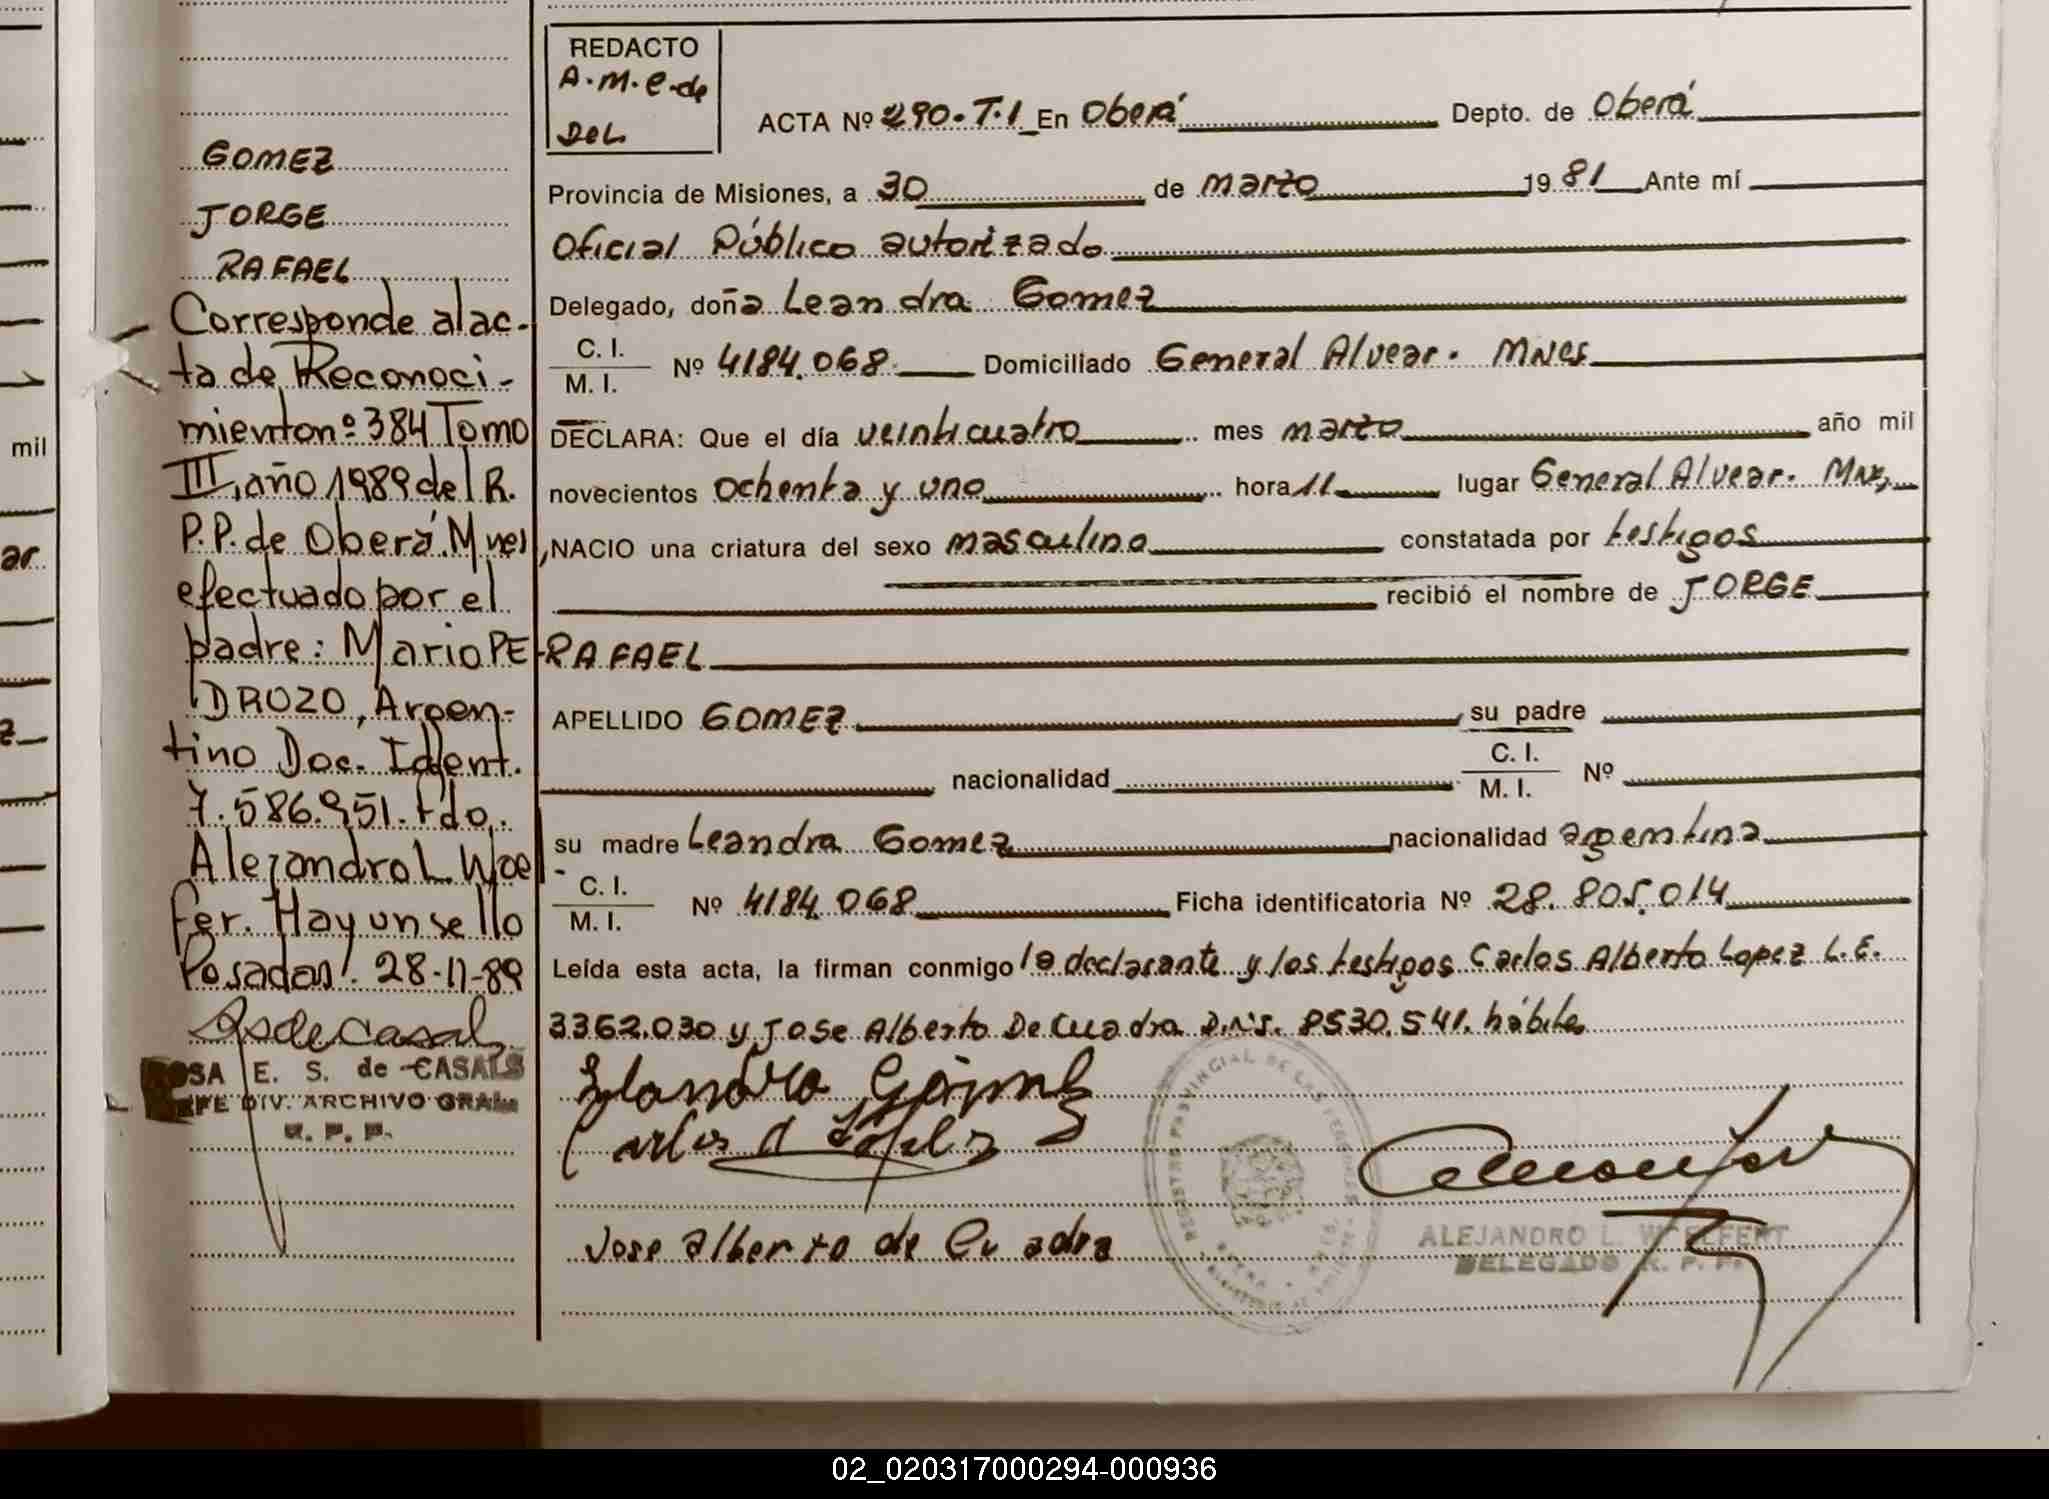 GOMEZ
JORGE
RAFAEL
Corresponde al ac-
ta de Reconoci-
miento nº 384 Tomo
III, año 1989 del R.
P.P. de Oberá. Mnes,
efectuado por el
padre: Mario PE-
DROZO, Argen-
tino Doc. Ident.
7.586.951. Fdo.
Alejandro L. Woel-
fer. Hay un sello
Posadas. 28-11-89
ROSA E. S. de CASALS
JEFE DIV. ARCHIVO GRAL.
R. P. P.
REDACTO
A.M.C. de
DEL
ACTA Nº 290-T.I En Oberá Depto. de Oberá
Provincia de Misiones, a 30 de marzo 1981 Ante mí
Oficial Público autorizado
Delegado, doña Leandra Gomez
C. I.
M. I. Nº 4184.068 Domiciliado General Alvear. MNES
DECLARA: Que el día veinticuatro mes marzo año mil
novecientos ochenta y uno hora 11 lugar General Alvear. MNES,
NACIO una criatura del sexo masculino constatada por testigos
recibió el nombre de JORGE
RAFAEL
APELLIDO GOMEZ su padre
nacionalidad C. I.
M. I. Nº
su madre Leandra Gomez nacionalidad argentina
C. I.
M. I. Nº 4184.068 Ficha identificatoria Nº 28.805.014
Leída esta acta, la firman conmigo la declarante y los testigos Carlos Alberto Lopez L.E.
3362.030 y Jose Alberto De Cuadra D.N.I. 8530.541. hábiles
Jose alberto de Cuadra
ALEJANDRO L. WOELFERT
DELEGADO R. P. P.
mil
ar
02_020317000294-000936